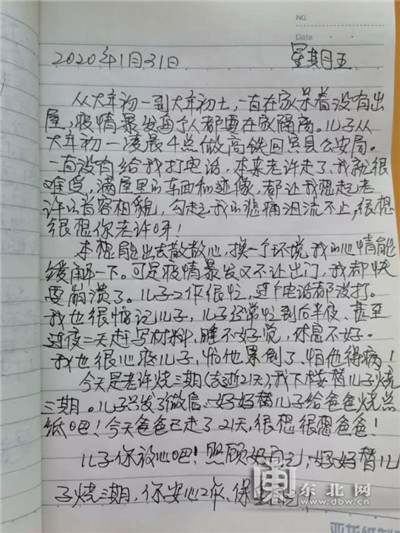 NO.
Date
2020年1月31日 星期五
从大年初一到大年初七,一直在家呆着没有出
屋,疫情暴发每个人都要在家隔离。儿子从
大年初一凌晨4点做高铁回宾县公安局。
一直没有给我打电话,本来老许走了,我就很
难受,满屋里的东西和遗像,都让我想起老
许的音容相貌,勾起我的悲痛泪流不止,很想
很想你老许呀!
本想能出去散散心,换一个环境,我的心情能
缓解一下。可是疫情暴发又不让出门,我都快
要崩溃了。儿子工作很忙,连个电话都没打。
我也很惦记儿子,儿子经常忙到后半夜,甚至
过夜二天赶写材料,睡不好觉,休息不好。
我也很心疼儿子,怕他累倒了,怕他得病!
今天是老许烧三期(去逝21天),我下楼替儿子烧
三期。儿子只发了微信,妈好好替儿子给爸爸烧点
纸吧!今天爸爸已走了21天,很想很想爸爸!
儿子你放心吧!照顾好自己,妈好好替儿
子烧三期,你安心工作,保
东北网